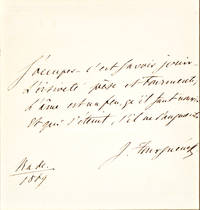 S'occuper c'est savoir jouir
L'oisiveté pèse et tourmente.
L'âme est un feu qu'il faut nourrir
Et qui s'éteint, s'il ne s'augmente.
J. Tourguéneff
1869